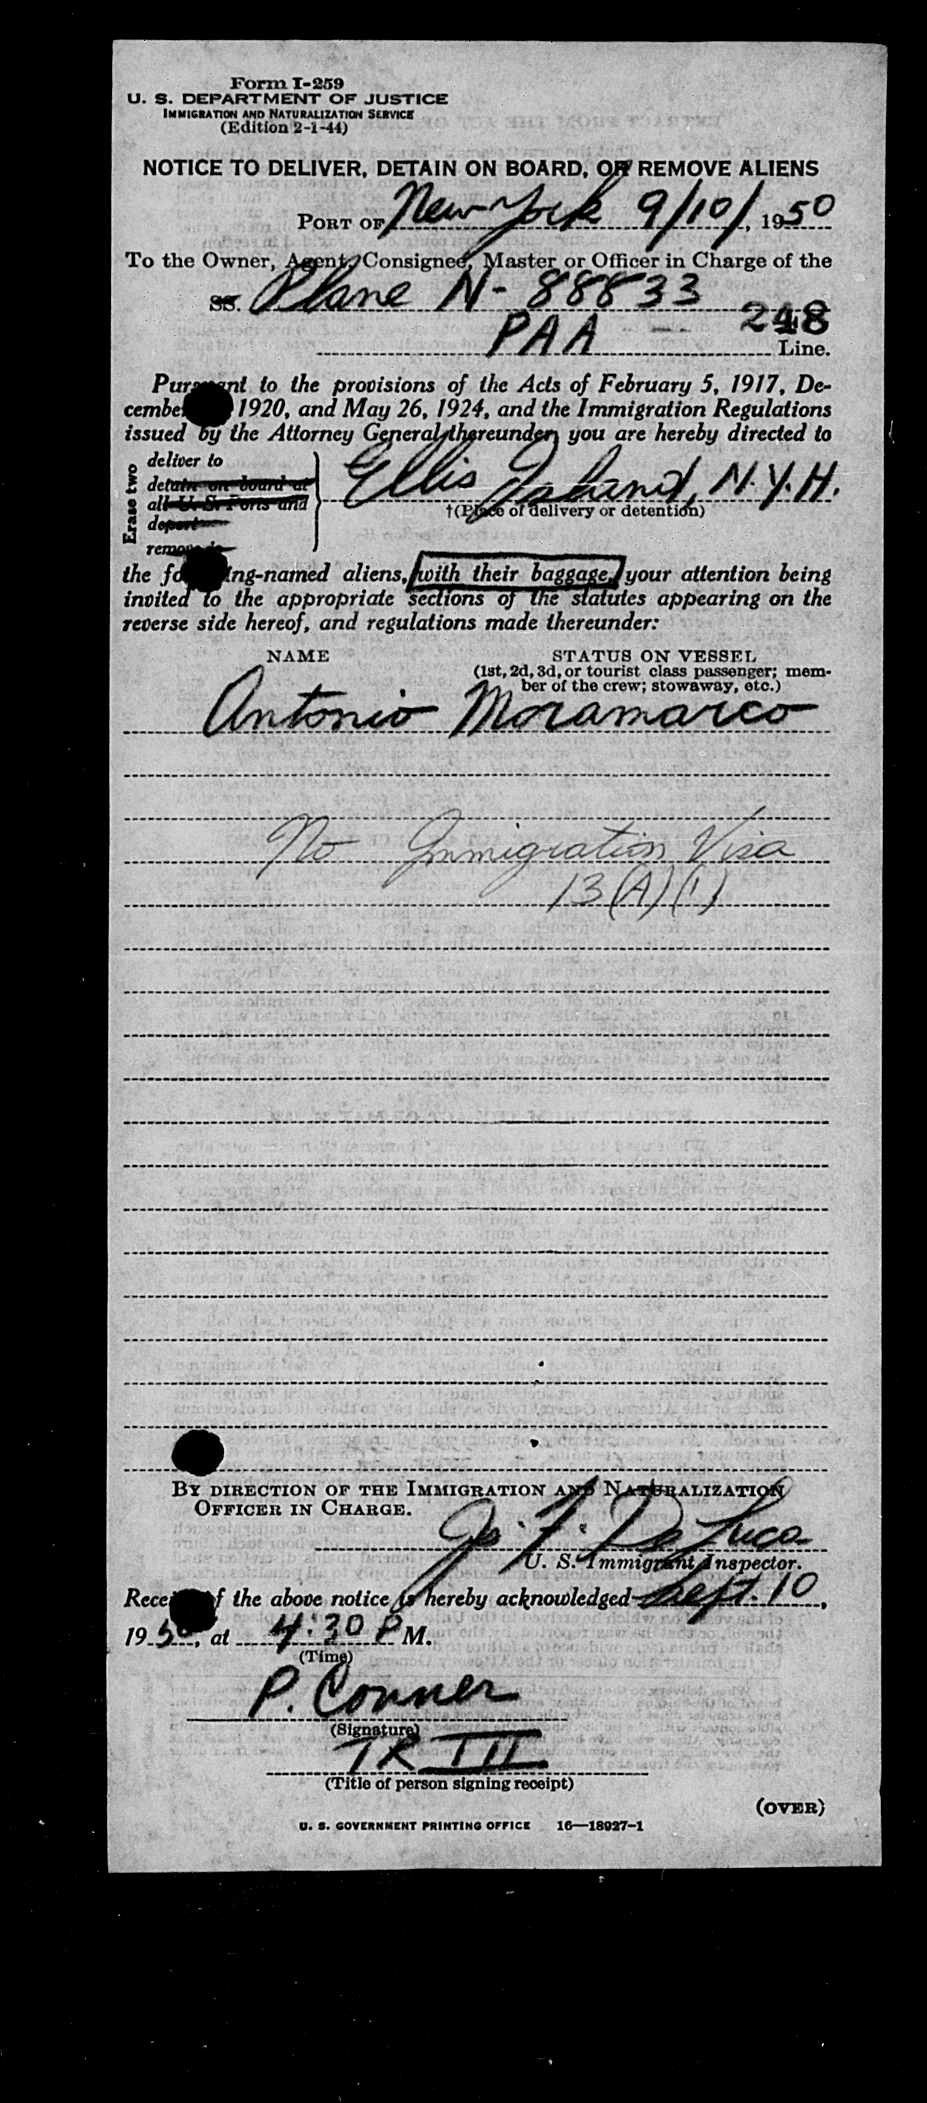 Form I-259
U. S. DEPARTMENT OF JUSTICE
IMMIGRATION AND NATURALIZATION SERVICE
(Edition 2-1-44)
NOTICE TO DELIVER, DETAIN ON BOARD, OR REMOVE ALIENS
PORT OF New York 9/10/, 1950
To the Owner, Agent, Consignee, Master or Officer in Charge of the
SS. Plane N-88833
PAA — 248
Line.
Pursuant to the provisions of the Acts of February 5, 1917, De-
cember 1920, and May 26, 1924, and the Immigration Regulations
issued by the Attorney General thereunder, you are hereby directed to
Erase two
deliver to
detain on board at
all U. S. Ports and
deport
remove
Ellis Island, N.Y.H.
†(Place of delivery or detention)
the following-named aliens, with their baggage, your attention being
invited to the appropriate sections of the statutes appearing on the
reverse side hereof, and regulations made thereunder:
NAME STATUS ON VESSEL
(1st, 2d, 3d, or tourist class passenger; mem-
ber of the crew; stowaway, etc.)
Antonio Moramarco
No Immigration Visa
13(A)(1)
BY DIRECTION OF THE IMMIGRATION AND NATURALIZATION
OFFICER IN CHARGE.
Jo. F. De Luca
U. S. Immigrant Inspector.
Receipt of the above notice is hereby acknowledged Sept. 10,
1950, at 4:30 P M.
(Time)
P. Conner
(Signature)
TR III
(Title of person signing receipt)
(OVER)
U. S. GOVERNMENT PRINTING OFFICE 16—18927-1